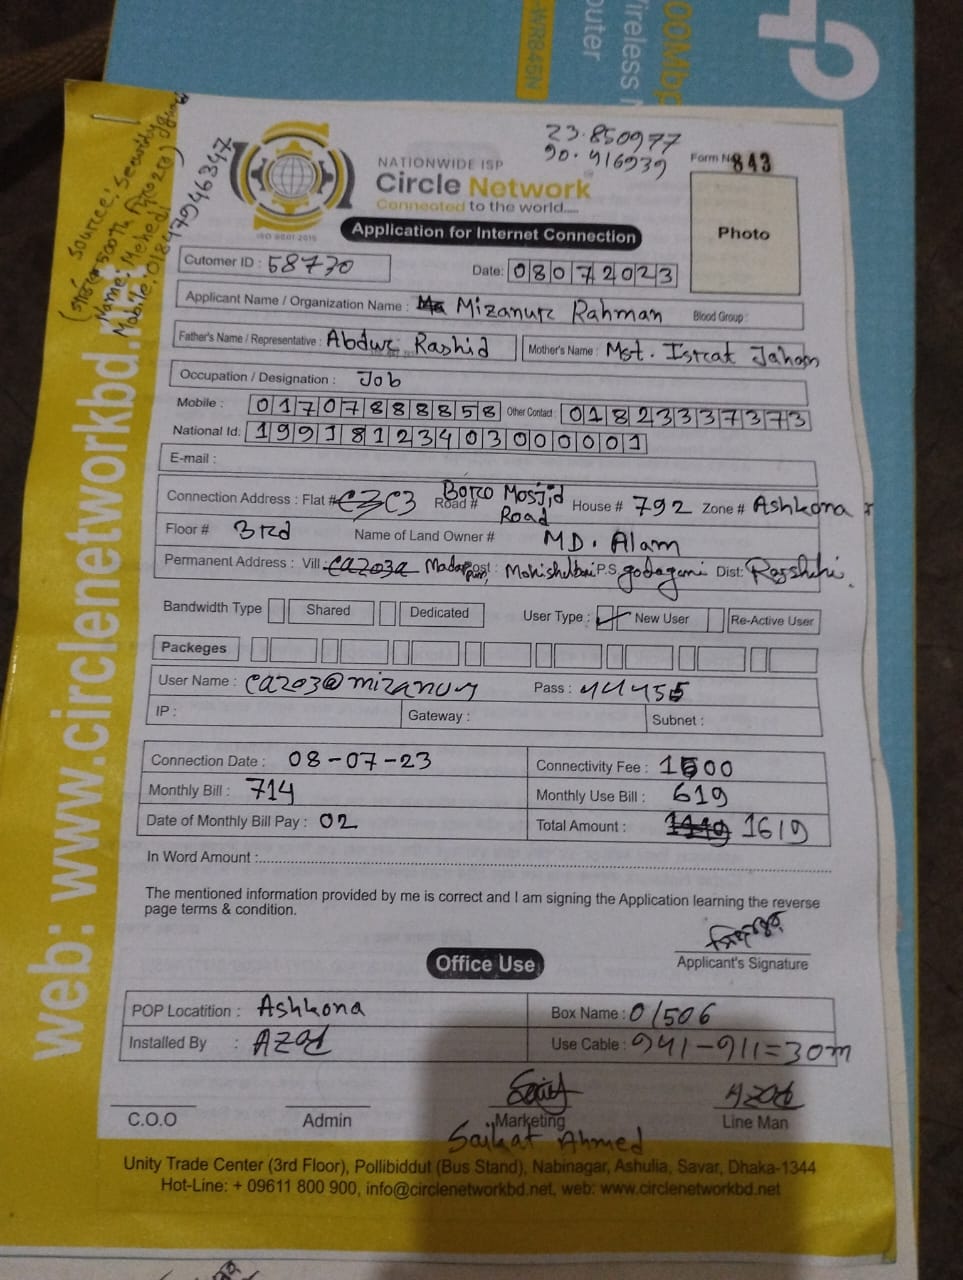 00Mbp
Wireless N
outer
-WR845N
23.850977
90.416939
Source: Security
Name: Mohedi
Mobile: 01847946347
NATIONWIDE ISP
Circle Network
Connected to the world.....
ISO 9001:2015
Form No 843
Photo
Application for Internet Connection
Cutomer ID : 58770
Date: 08072023
Applicant Name / Organization Name : Mizanur Rahman Blood Group :
Father's Name / Representative : Abdur Rashid Mother's Name : Mst. Israt Jahan
Occupation / Designation : Job
Mobile : 01707888858 Other Contact : 01823337373
National Id: 19918123403000001
E-mail :
Connection Address : Flat # C3 Road # Boro Mosjid Road House # 792 Zone # Ashkona
Floor # 3rd Name of Land Owner # MD. Alam
Permanent Address : Vill : Madarpur, Post : P.S, godagari Dist:
Bandwidth Type Shared Dedicated User Type : New User Re-Active User
Packeges
User Name : ca203@mizanur Pass : 44455
IP : Gateway : Subnet :
Connection Date : 08-07-23 Connectivity Fee : 1000
Monthly Bill : 714 Monthly Use Bill : 619
Date of Monthly Bill Pay : 02 Total Amount : 1619
In Word Amount :
The mentioned information provided by me is correct and I am signing the Application learning the reverse
page terms & condition.
Applicant's Signature
Office Use
POP Locatition : Ashkona Box Name : 01506
Installed By : Azad Use Cable : 941-911=30m
C.O.O Admin Marketing Line Man
Saikat Ahmed
Unity Trade Center (3rd Floor), Pollibiddut (Bus Stand), Nabinagar, Ashulia, Savar, Dhaka-1344
Hot-Line: + 09611 800 900, info@circlenetworkbd.net, web: www.circlenetworkbd.net
web: www.circlenetworkbd.net